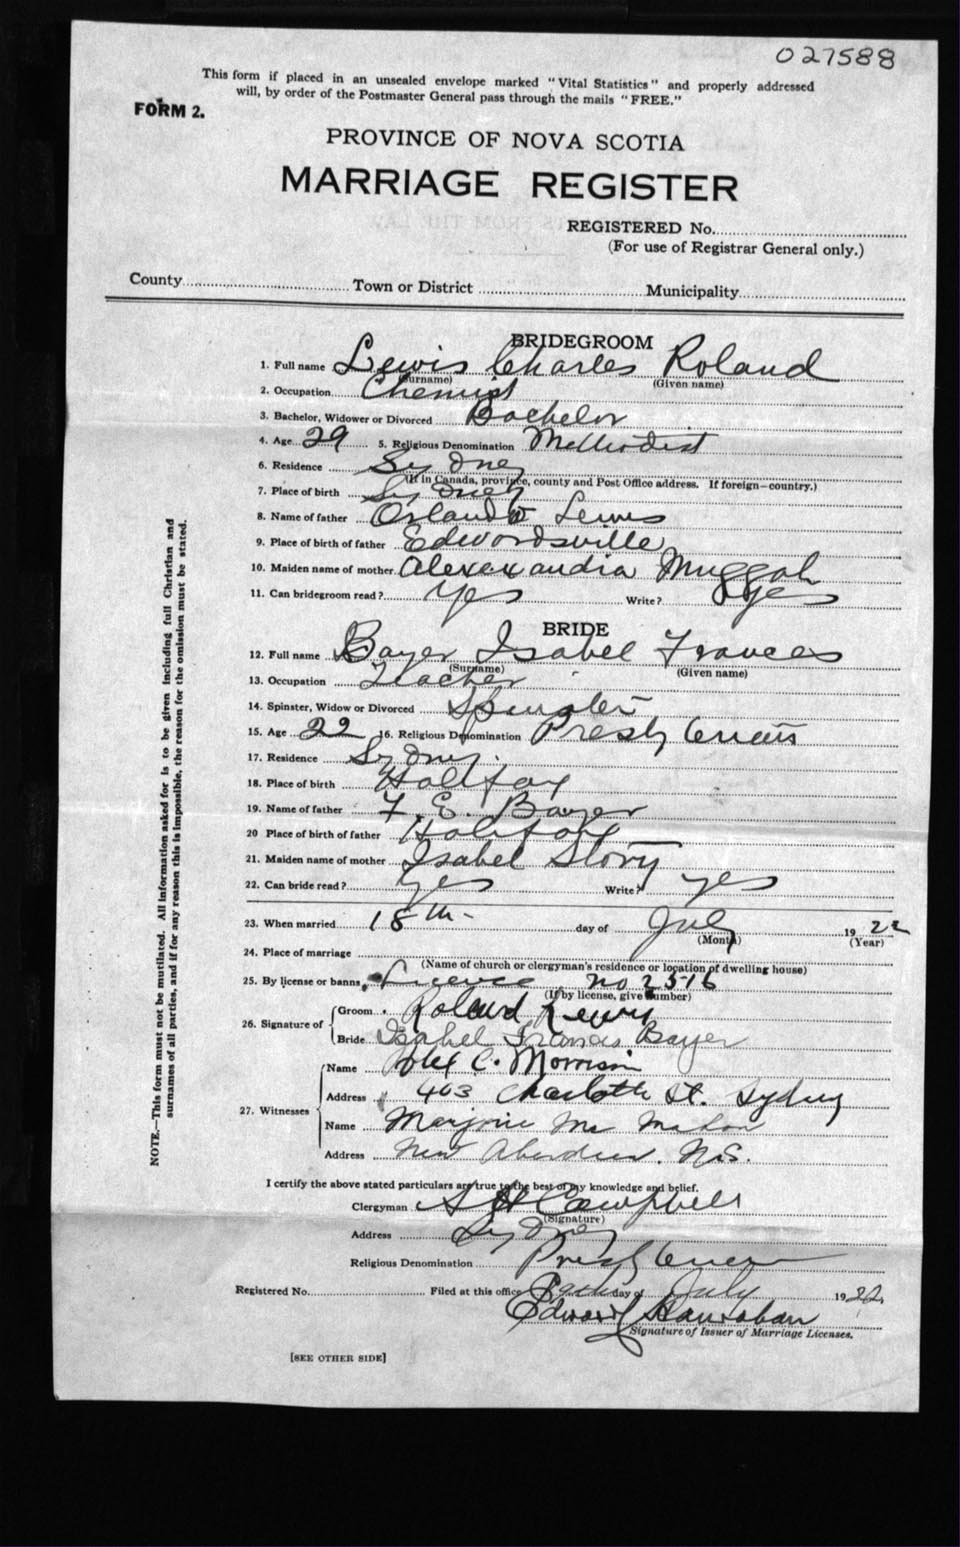 027588
This form if placed in an unsealed envelope marked "Vital Statistics" and properly addressed
will, by order of the Postmaster General pass through the mails "FREE."
FORM 2.
PROVINCE OF NOVA SCOTIA
MARRIAGE REGISTER
REGISTERED No.
(For use of Registrar General only.)
County Town or District Municipality
BRIDEGROOM
1. Full name Lewis Charles Roland
(Surname) (Given name)
2. Occupation Chemist
3. Bachelor, Widower or Divorced Bachelor
4. Age 29 5. Religious Denomination Methodist
6. Residence Sydney
(If in Canada, province, county and Post Office address. If foreign—country.)
7. Place of birth Sydney
8. Name of father Orlando Lewis
9. Place of birth of father Edwardsville
10. Maiden name of mother Alexexandia Muggah
11. Can bridegroom read? Yes Write? Yes
BRIDE
12. Full name Bayer Isabel Frances
(Surname) (Given name)
13. Occupation Teacher
14. Spinster, Widow or Divorced Spinster
15. Age 22 16. Religious Denomination Presbyterian
17. Residence Sydney
18. Place of birth Halifax
19. Name of father F. E. Bayer
20 Place of birth of father Halifax
21. Maiden name of mother Isabel Story
22. Can bride read? Yes Write? yes
23. When married 18th day of July 1922
(Month) (Year)
24. Place of marriage
(Name of church or clergyman's residence or location of dwelling house)
25. By license or banns Licence no 2516
(If by license, give number)
26. Signature of Groom Roland Lewis
Bride Isabel Frances Bayer
27. Witnesses Name Alex C. Morrison
Address 463 Charlotte St. Sydney
Name Marjorie Mc Mahon
Address New Aberdeen. N.S.
I certify the above stated particulars are true to the best of my knowledge and belief.
Clergyman Campbell
(Signature)
Address Sydney
Religious Denomination Presbyterian
Registered No. Filed at this office day of July 1922
Edward
Signature of Issuer of Marriage Licenses.
[SEE OTHER SIDE]
NOTE.—This form must not be mutilated. All information asked for is to be given including full Christian and
surnames of all parties, and if for any reason this is impossible, the reason for the omission must be stated.